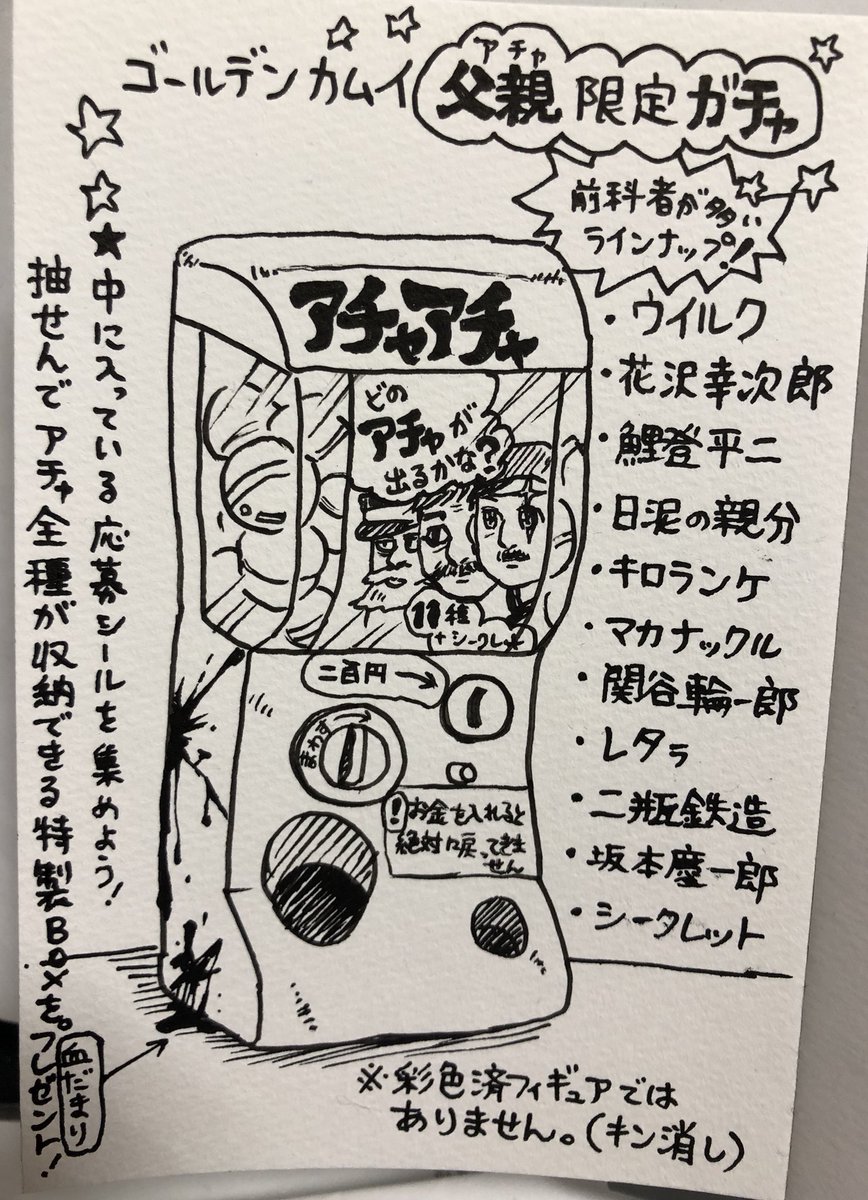 ゴールデンカムイ
アチャ
父親限定ガチャ
前科者が多い
ラインナップ!
・ウイルク
・花沢幸次郎
・鯉登平二
・日泥の親分
・キロランケ
・マカナックル
・関谷輪一郎
・レタラ
・二瓶鉄造
・坂本慶一郎
・シークレット
アチャアチャ
どの
アチャが
出るかな?
11種
+シークレット
二百円→
まわす
!お金を入れると
絶対に戻ってきま
せん
★中に入っている応募シールを集めよう!
抽せんでアチャ全種が収納できる特製BOXを。プレゼント!
血だまり
※彩色済フィギュアでは
ありません。(キン消し)